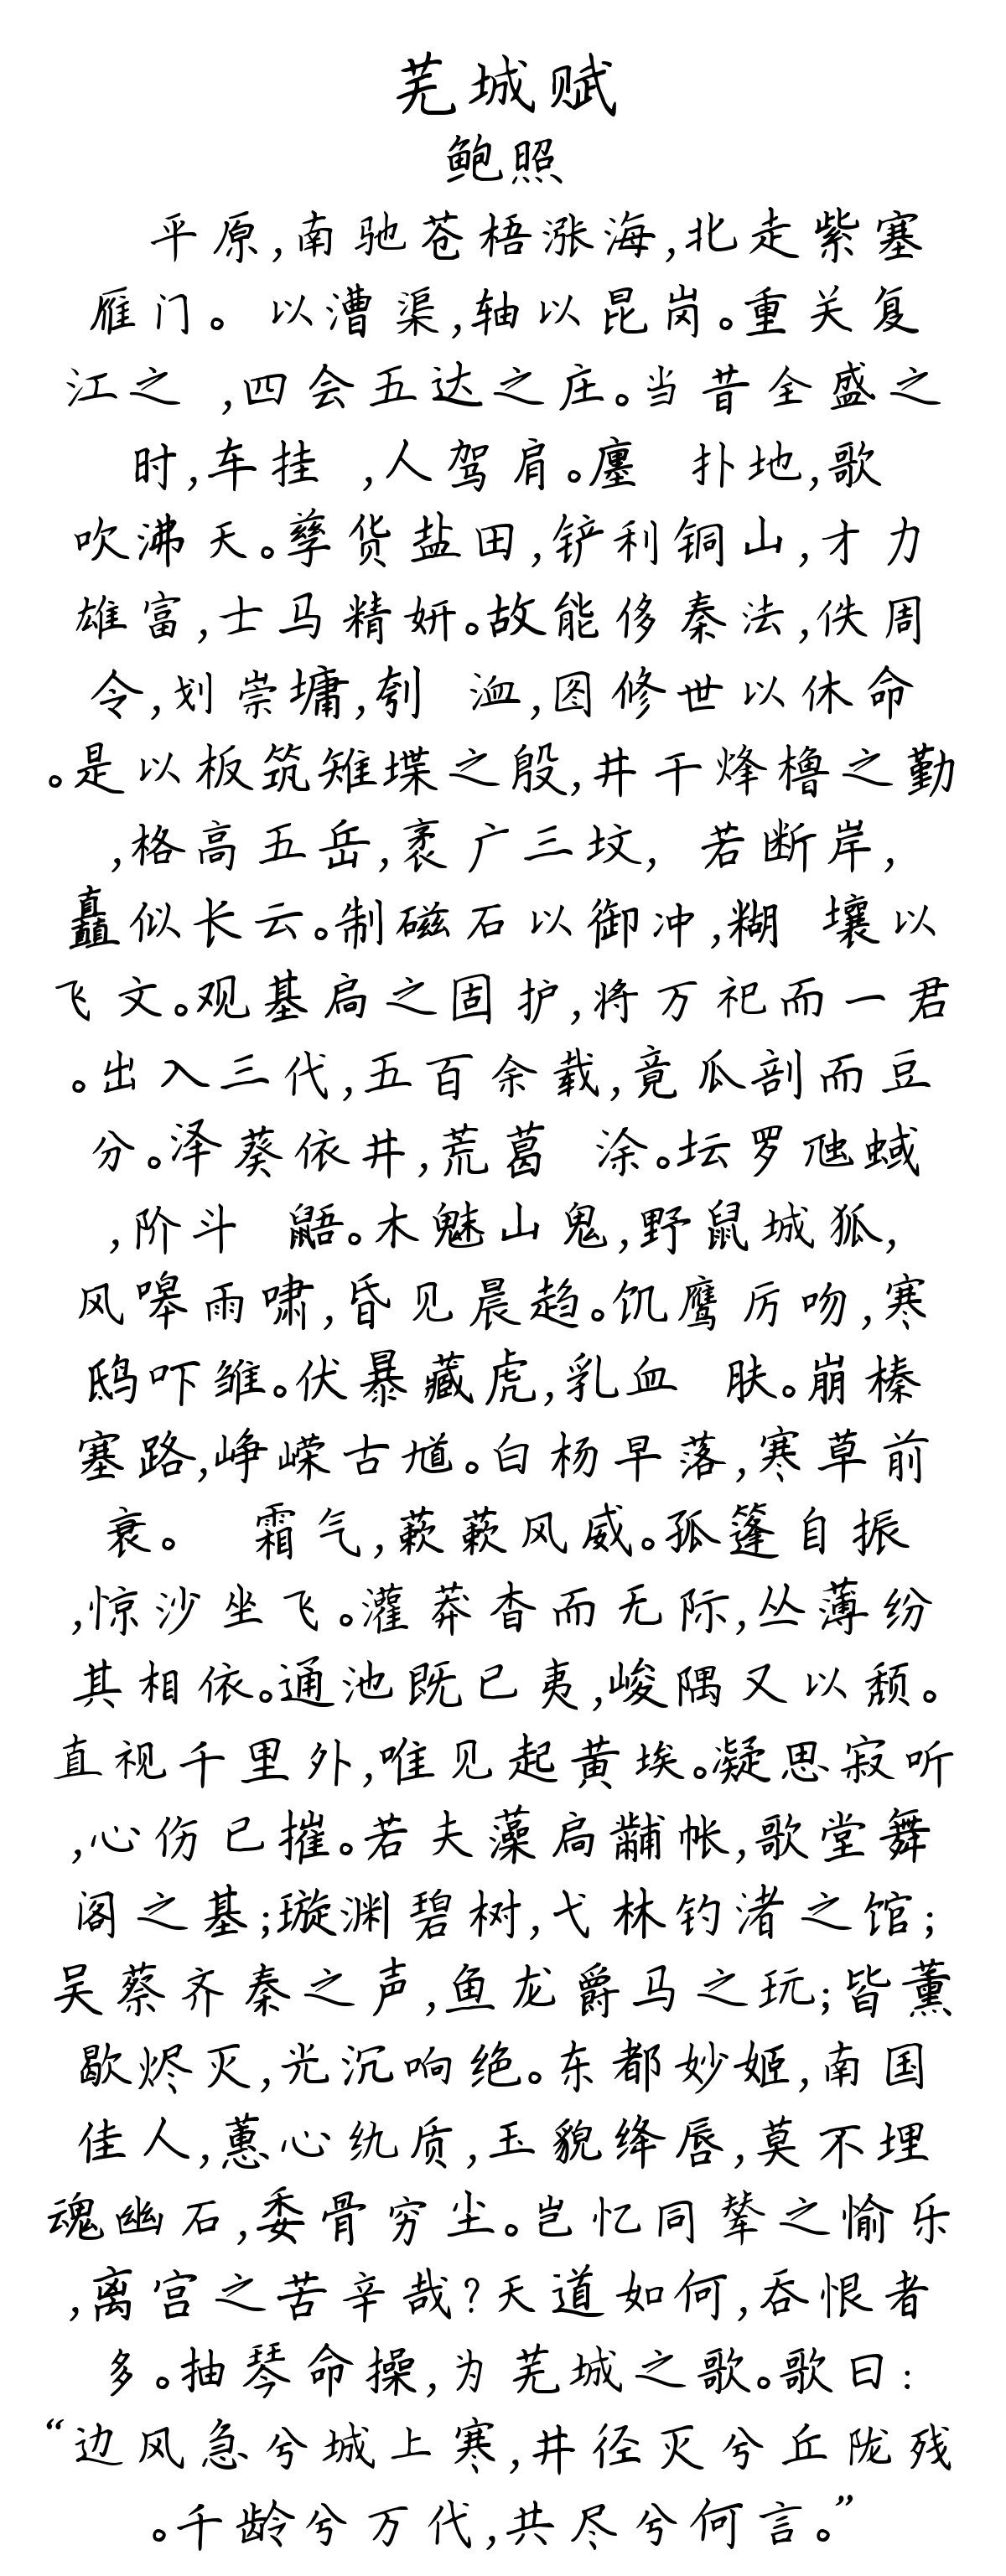 芜城赋
鲍照
平原,南驰苍梧涨海,北走紫塞
雁门。 以漕渠,轴以昆岗。重关复
江之 ,四会五达之庄。当昔全盛之
时,车挂 ,人驾肩。廛 扑地,歌
吹沸天。孳货盐田,铲利铜山,才力
雄富,士马精妍。故能侈秦法,佚周
令,划崇墉,刳 洫,图修世以休命
。是以板筑雉堞之殷,井干烽橹之勤
,格高五岳,袤广三坟, 若断岸,
矗似长云。制磁石以御冲,糊 壤以
飞文。观基扃之固护,将万祀而一君
。出入三代,五百余载,竟瓜剖而豆
分。泽葵依井,荒葛 涂。坛罗虺蜮
,阶斗 鼯。木魅山鬼,野鼠城狐,
风嗥雨啸,昏见晨趋。饥鹰厉吻,寒
鸱吓雏。伏暴藏虎,乳血 肤。崩榛
塞路,峥嵘古馗。白杨早落,寒草前
衰。 霜气,蔌蔌风威。孤篷自振
,惊沙坐飞。灌莽杳而无际,丛薄纷
其相依。通池既已夷,峻隅又以颓。
直视千里外,唯见起黄埃。凝思寂听
,心伤已摧。若夫藻扃黼帐,歌堂舞
阁之基;璇渊碧树,弋林钓渚之馆;
吴蔡齐秦之声,鱼龙爵马之玩;皆薰
歇烬灭,光沉响绝。东都妙姬,南国
佳人,蕙心纨质,玉貌绛唇,莫不埋
魂幽石,委骨穷尘。岂忆同辇之愉乐
,离宫之苦辛哉?天道如何,吞恨者
多。抽琴命操,为芜城之歌。歌曰:
“边风急兮城上寒,井径灭兮丘陇残
。千龄兮万代,共尽兮何言。”